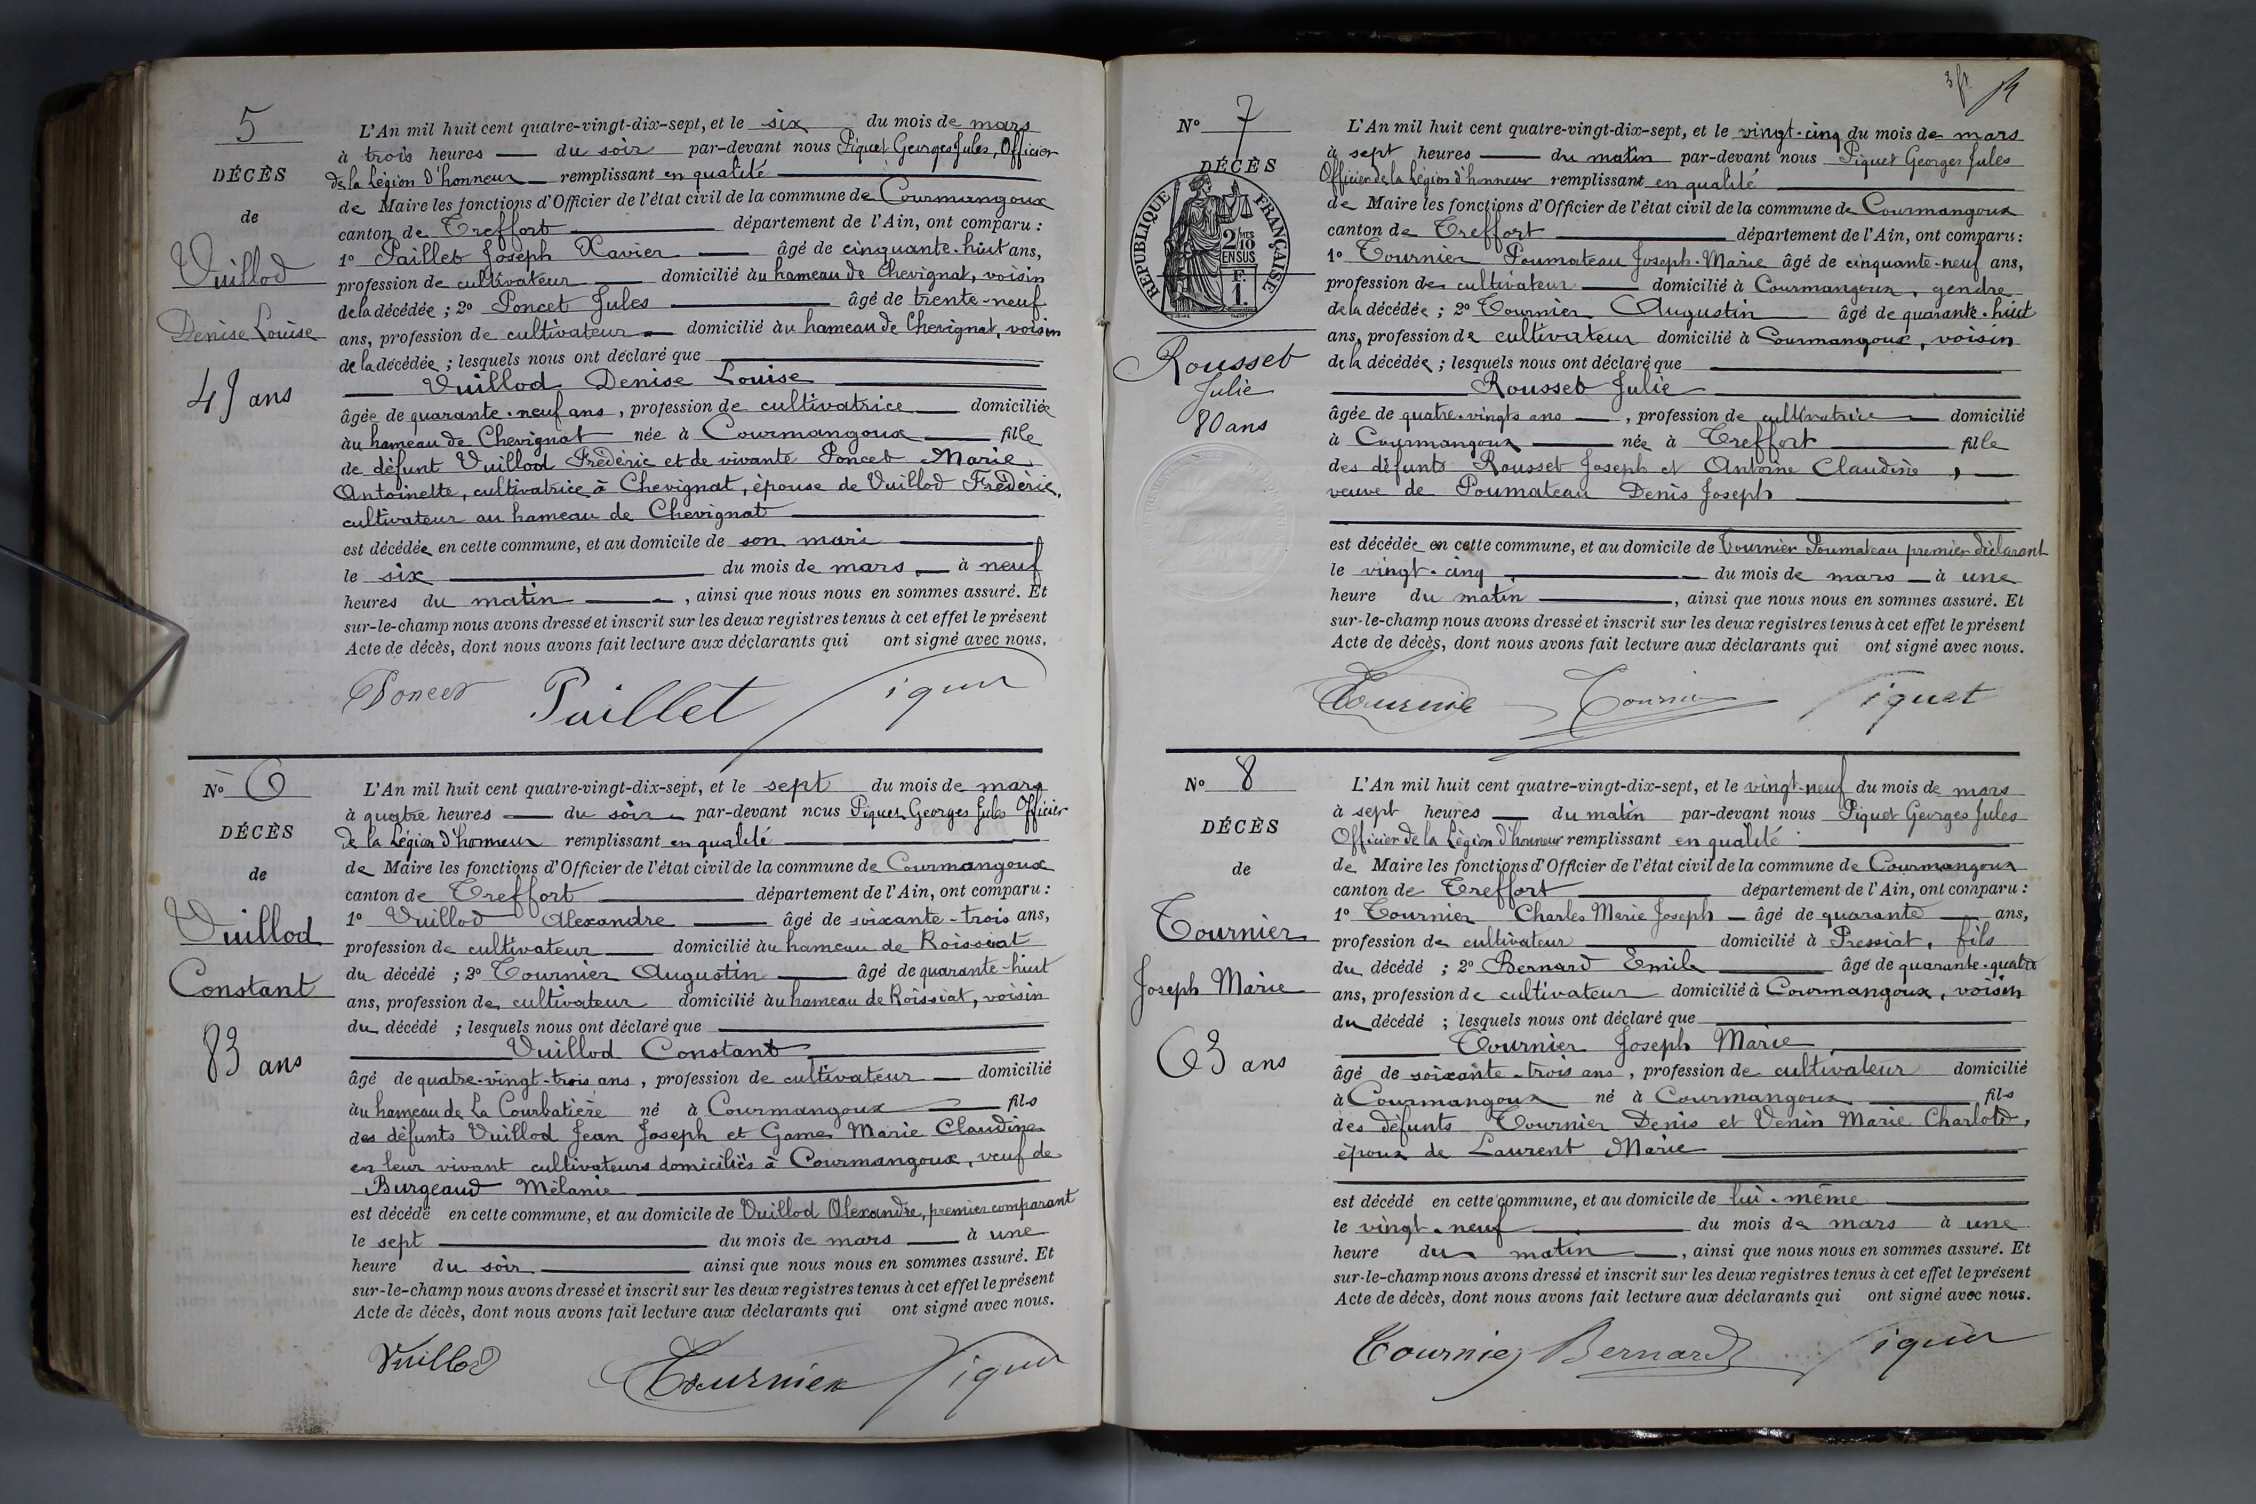 5
DÉCÈS
de
Vuillod
Denise Louise
49 ans
L'An mil huit cent quatre-vingt-dix-sept, et le six du mois de mars
à trois heures du soir par-devant nous Piquet Georges Jules, Officier
de la Légion d'honneur remplissant en qualité
de Maire les fonctions d'Officier de l'état civil de la commune de Courmangoux
canton de Treffort département de l'Ain, ont comparu :
1º Paillet Joseph Xavier âgé de cinquante-huit ans,
profession de cultivateur domicilié au hameau de Chevignat, voisin
de la décédée ; 2º Poncet Jules âgé de trente-neuf
ans, profession de cultivateur domicilié au hameau de Chevignat, voisin
de la décédée ; lesquels nous ont déclaré que
Vuillod Denise Louise
âgée de quarante-neuf ans, profession de cultivatrice domiciliée
au hameau de Chevignat née à Courmangoux fille
de défunt Vuillod Frédéric et de vivante Poncet Marie
Antoinette, cultivatrice à Chevignat, épouse de Vuillod Frédéric,
cultivateur au hameau de Chevignat
est décédée en cette commune, et au domicile de son mari
le six du mois de mars à neuf
heures du matin, ainsi que nous nous en sommes assuré. Et
sur-le-champ nous avons dressé et inscrit sur les deux registres tenus à cet effet le présent
Acte de décès, dont nous avons fait lecture aux déclarants qui ont signé avec nous.
Poncet Paillet Piquet
Nº 6
DÉCÈS
de
Vuillod
Constant
83 ans
L'An mil huit cent quatre-vingt-dix-sept, et le sept du mois de mars
à quatre heures du soir par-devant nous Piquet Georges Jules Officier
de la Légion d'honneur remplissant en qualité
de Maire les fonctions d'Officier de l'état civil de la commune de Courmangoux
canton de Treffort département de l'Ain, ont comparu :
1º Vuillod Alexandre âgé de soixante-trois ans,
profession de cultivateur domicilié au hameau de Roissiat
du décédé ; 2º Tournier Augustin âgé de quarante-huit
ans, profession de cultivateur domicilié au hameau de Roissiat, voisin
du décédé ; lesquels nous ont déclaré que
Vuillod Constant
âgé de quatre-vingt-trois ans, profession de cultivateur domicilié
au hameau de La Courbatière né à Courmangoux fils
des défunts Vuillod Jean Joseph et Game Marie Claudine
en leur vivant cultivateurs domiciliés à Courmangoux, veuf de
Burgeaud Mélanie
est décédé en cette commune, et au domicile de Vuillod Alexandre, premier comparant
le sept du mois de mars à une
heure du soir ainsi que nous nous en sommes assuré. Et
sur-le-champ nous avons dressé et inscrit sur les deux registres tenus à cet effet le présent
Acte de décès, dont nous avons fait lecture aux déclarants qui ont signé avec nous.
Vuillod Tournier Piquet
Nº 7
DÉCÈS
RÉPUBLIQUE FRANÇAISE
2/10 EN SUS
F. 1.
Rousset
Julie
80 ans
L'An mil huit cent quatre-vingt-dix-sept, et le vingt-cinq du mois de mars
à sept heures du matin par-devant nous Piquet Georges Jules
Officier de la Légion d'honneur remplissant en qualité
de Maire les fonctions d'Officier de l'état civil de la commune de Courmangoux
canton de Treffort département de l'Ain, ont comparu :
1º Tournier Poumateau Joseph-Marie âgé de cinquante-neuf ans,
profession de cultivateur domicilié à Courmangoux, gendre
de la décédée ; 2º Tournier Augustin âgé de quarante-huit
ans, profession de cultivateur domicilié à Courmangoux, voisin
de la décédée ; lesquels nous ont déclaré que
Rousset Julie
âgée de quatre-vingts ans, profession de cultivatrice domicilié
à Courmangoux née à Treffort fille
des défunts Rousset Joseph et Antoine Claudine,
veuve de Poumateau Denis Joseph
est décédée en cette commune, et au domicile de Tournier Poumateau premier déclarant
le vingt-cinq du mois de mars à une
heure du matin, ainsi que nous nous en sommes assuré. Et
sur-le-champ nous avons dressé et inscrit sur les deux registres tenus à cet effet le présent
Acte de décès, dont nous avons fait lecture aux déclarants qui ont signé avec nous.
Tournier Tournier Piquet
Nº 8
DÉCÈS
de
Tournier
Joseph Marie
63 ans
L'An mil huit cent quatre-vingt-dix-sept, et le vingt-neuf du mois de mars
à sept heures du matin par-devant nous Piquet Georges Jules
Officier de la Légion d'honneur remplissant en qualité
de Maire les fonctions d'Officier de l'état civil de la commune de Courmangoux
canton de Treffort département de l'Ain, ont comparu :
1º Tournier Charles Marie Joseph âgé de quarante ans,
profession de cultivateur domicilié à Pressiat, fils
du décédé ; 2º Bernard Emile âgé de quarante-quatre
ans, profession de cultivateur domicilié à Courmangoux, voisin
du décédé ; lesquels nous ont déclaré que
Tournier Joseph Marie
âgé de soixante-trois ans, profession de cultivateur domicilié
à Courmangoux né à Courmangoux fils
des défunts Tournier Denis et Venin Marie Charlotte,
époux de Laurent Marie
est décédé en cette commune, et au domicile de lui-même
le vingt-neuf du mois de mars à une
heure du matin, ainsi que nous nous en sommes assuré. Et
sur-le-champ nous avons dressé et inscrit sur les deux registres tenus à cet effet le présent
Acte de décès, dont nous avons fait lecture aux déclarants qui ont signé avec nous.
Tournier Bernard Piquet